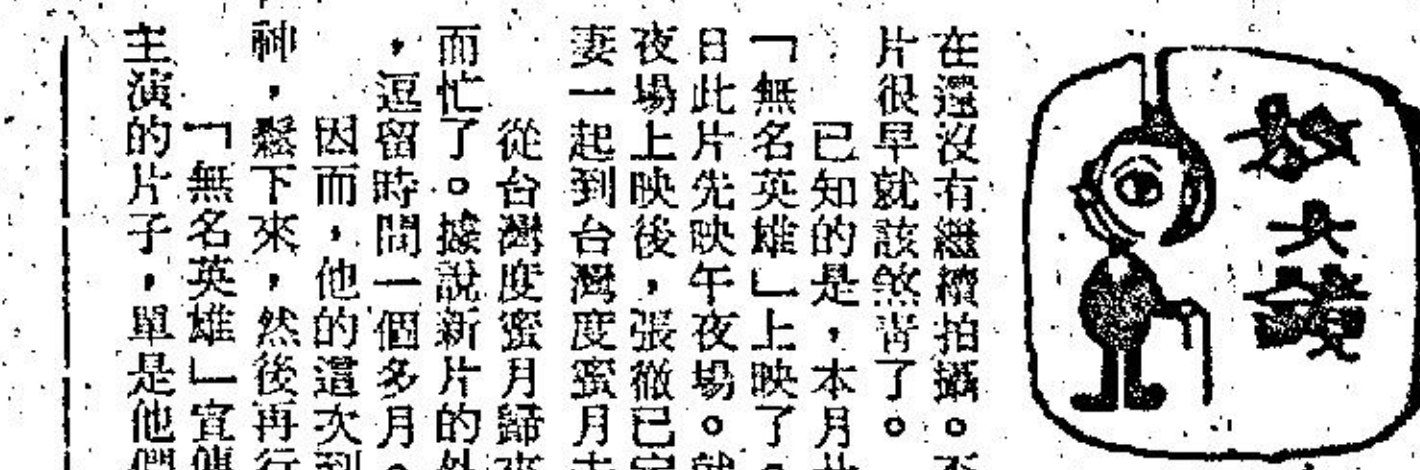 在還沒有繼續拍攝。否
片很早就該煞青了。
已知的是，本月廿
「無名英雄」上映了。
日此片先映午夜場。就
夜場上映後，張徹已定
妻一起到台灣度蜜月去
從台灣度蜜月歸來
而忙了。據說新片的外
，逗留時間一個多月。
因而，他的這次到
神，鬆下來，然後再行
「無名英雄」宣傳
主演的片子，單是他們